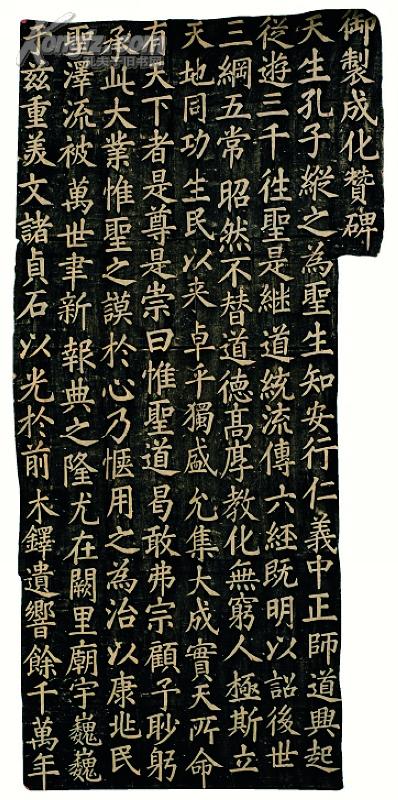 御製成化贊碑
天生孔子縱之為聖生知安行仁義中正師道興起
從遊三千往聖是継道統流傳六經既明以詔後世
三綱五常昭然不替道德髙厚教化無窮人極斯立
天地同功生民以来卓乎獨盛允集大成實天所命
有天下者是尊是崇曰惟聖道曷敢弗宗顧予眇躬
承此大業惟聖之謨於心乃愜用之為治以康兆民
聖澤流被萬世聿新報典之隆尤在闕里廟宇巍巍
于兹重美文諸貞石以光於前木鐸遺響餘千萬年